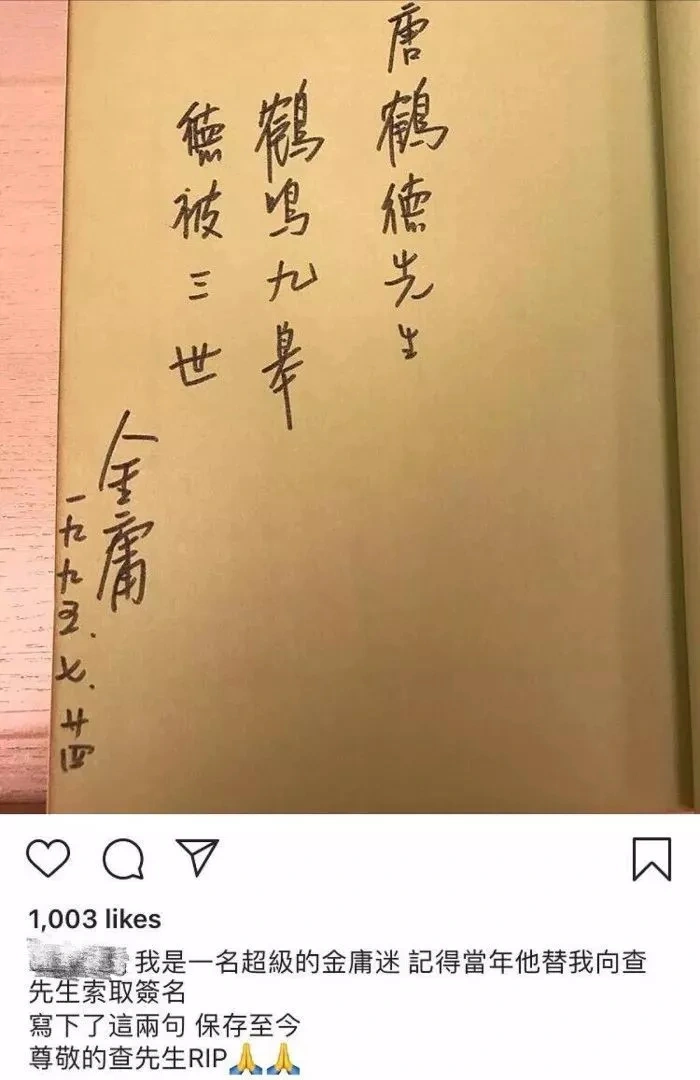 唐鶴德先生
鶴鳴九皋
德被三世
金庸
一九九五.七.廿四
1,003 likes
我是一名超級的金庸迷 記得當年他替我向查
先生索取簽名
寫下了這兩句 保存至今
尊敬的查先生RIP🙏🙏